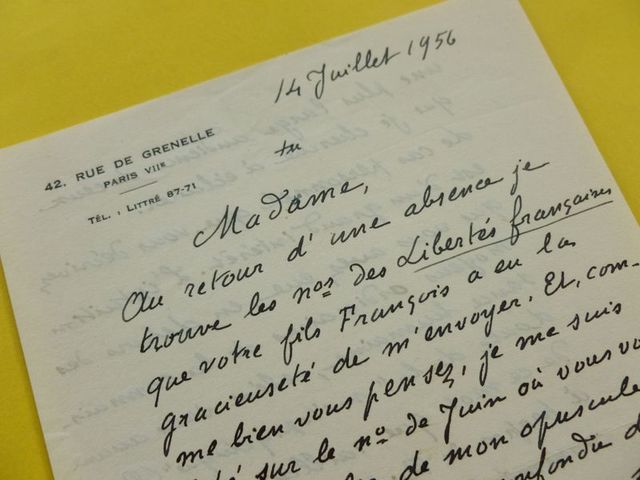 14 Juillet 1956
42, RUE DE GRENELLE
PARIS VIIe
TÉL. : LITTRÉ 87-71
Madame,
Au retour d'une absence je
trouve les nos des Libertés françaises
que votre fils François a eu la
gracieuseté de m'envoyer. Et, com-
me bien vous pensez, je me suis
sur le no de Juin où vous
de mon opuscule